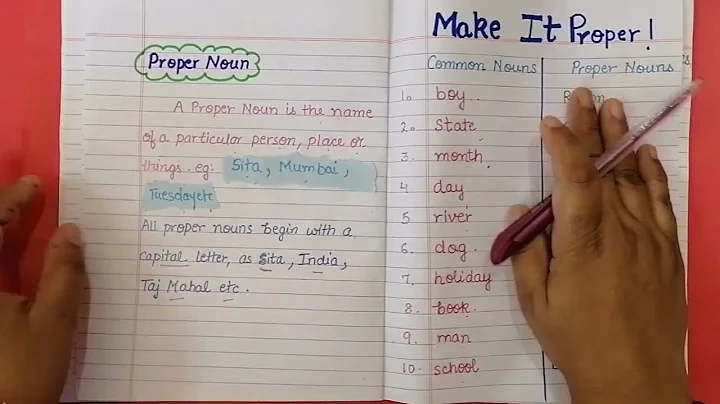 Proper Noun
A Proper Noun is the name
of a particular person, place or
things. eg: Sita, Mumbai,
Tuesday etc
All proper nouns begin with a
capital letter, as Sita, India,
Taj Mahal etc.
Make It Proper!
Common Nouns Proper Nouns
1. boy.
2. state
3. month.
4 day
5 river
6. dog.
7. holiday
8. book.
9. man
10. school